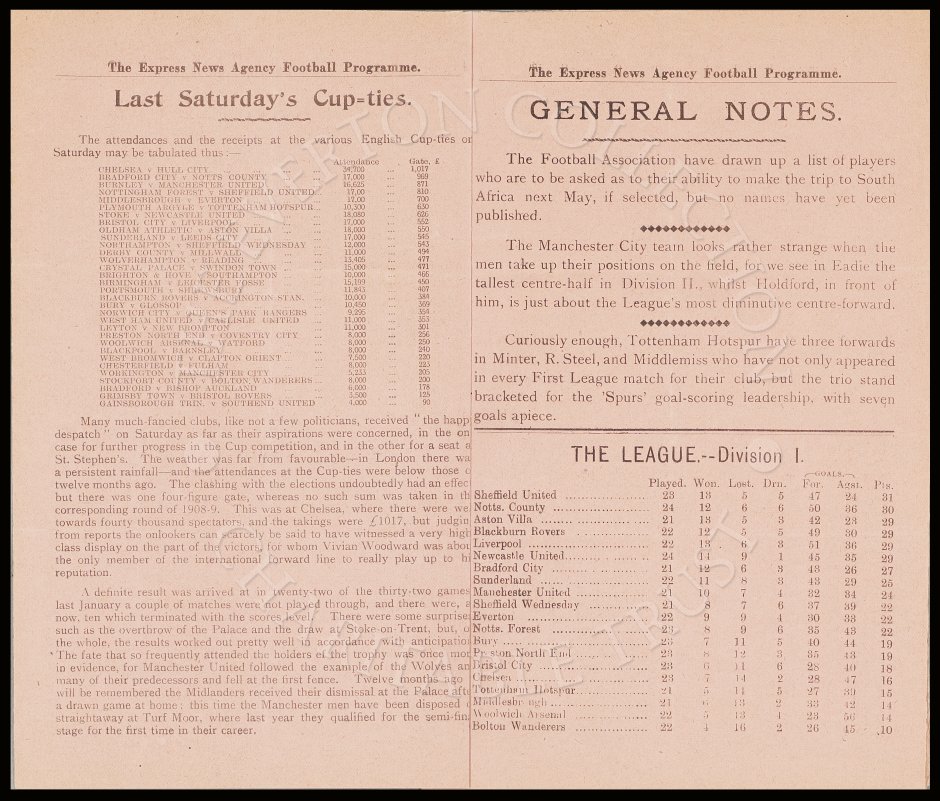 The Express News Agency Football Programme.
Last Saturday's Cup=ties.
The attendances and the receipts at the various English Cup-ties or
Saturday may be tabulated thus :—
Attendance Gate, £
CHELSEA v HULL CITY ... 39,700 ... 1,017
BRADFORD CITY v NOTTS COUNTY ... 17,000 ... 969
BURNLEY v MANCHESTER UNITED ... 16,625 ... 871
NOTTINGHAM FOREST v SHEFFIELD UNITED... 17,000 ... 810
MIDDLESBROUGH v EVERTON ... 17,000 ... 700
PLYMOUTH ARGYLE v TOTTENHAM HOTSPUR... 10,300 ... 630
STOKE v NEWCASTLE UNITED ... 18,080 ... 626
BRISTOL CITY v LIVERPOOL ... 17,000 ... 552
OLDHAM ATHLETIC v ASTON VILLA ... 18,000 ... 550
SUNDERLAND v LEEDS CITY ... 17,000 ... 545
NORTHAMPTON v SHEFFIELD WEDNESDAY ... 12,000 ... 543
DERBY COUNTY v MILLWALL ... 11,000 ... 494
WOLVERHAMPTON v READING ... 13,405 ... 477
CRYSTAL PALACE v SWINDON TOWN ... 15,000 ... 471
BRIGHTON & HOVE v SOUTHAMPTON ... 10,000 ... 465
BIRMINGHAM v LEICESTER FOSSE ... 15,199 ... 450
PORTSMOUTH v SHREWSBURY ... 11,843 ... 407
BLACKBURN ROVERS v ACCRINGTON STAN. ... 10,000 ... 384
BURY v GLOSSOP ... 10,450 ... 369
NORWICH CITY v QUEEN'S PARK RANGERS ... 9,295 ... 354
WEST HAM UNITED v CARLISLE UNITED ... 11,000 ... 353
LEYTON v NEW BROMPTON ... 11,000 ... 301
PRESTON NORTH END v COVENTRY CITY ... 8,000 ... 256
WOOLWICH ARSENAL v WATFORD ... 8,000 ... 250
BLACKPOOL v BARNSLEY ... 8,000 ... 240
WEST BROMWICH v CLAPTON ORIENT ... 7,500 ... 220
CHESTERFIELD v FULHAM ... 8,000 ... 223
WORKINGTON v MANCHESTER CITY ... 5,233 ... 205
STOCKPORT COUNTY v BOLTON WANDERERS ... 8,000 ... 200
BRADFORD v BISHOP AUCKLAND ... 6,000 ... 178
GRIMSBY TOWN v BRISTOL ROVERS ... 3,500 ... 125
GAINSBOROUGH TRIN. v SOUTHEND UNITED ... 4,000 ... 90
Many much-fancied clubs, like not a few politicians, received "the happ
despatch" on Saturday as far as their aspirations were concerned, in the on
case for further progress in the Cup competition, and in the other for a seat a
St. Stephen's. The weather was far from favourable—in London there wa
a persistent rainfall—and the attendances at the Cup-ties were below those o
twelve months ago. The clashing with the elections undoubtedly had an effec
but there was one four-figure gate, whereas no such sum was taken in th
corresponding round of 1908-9. This was at Chelsea, where there were wel
towards fourty thousand spectators, and the takings were £1017, but judgin
from reports the onlookers can scarcely be said to have witnessed a very high
class display on the part of the victors, for whom Vivian Woodward was abou
the only member of the international forward line to really play up to hi
reputation.
A definite result was arrived at in twenty-two of the thirty-two games
last January a couple of matches were not played through, and there were, a
now, ten which terminated with the scores level. There were some surprise
such as the overthrow of the Palace and the draw at Stoke-on-Trent, but, o
the whole, the results worked out pretty well in accordance with anticipatio
The fate that so frequently attended the holders of the trophy was once mor
in evidence, for Manchester United followed the example of the Wolves an
many of their predecessors and fell at the first fence. Twelve months ago i
will be remembered the Midlanders received their dismissal at the Palace afte
a drawn game at home; this time the Manchester men have been disposed o
straightaway at Turf Moor, where last year they qualified for the semi-fin
stage for the first time in their career.
The Express News Agency Football Programme.
GENERAL NOTES.
The Football Association have drawn up a list of players
who are to be asked as to their ability to make the trip to South
Africa next May, if selected, but no names have yet been
published.
The Manchester City team looks rather strange when the
men take up their positions on the field, for we see in Eadie the
tallest centre-half in Division II., whilst Holdford, in front of
him, is just about the League's most diminutive centre-forward.
Curiously enough, Tottenham Hotspur have three forwards
in Minter, R. Steel, and Middlemiss who have not only appeared
in every First League match for their club, but the trio stand
bracketed for the 'Spurs' goal-scoring leadership, with seven
goals apiece.
THE LEAGUE.--Division I.
GOALS.
Played. Won. Lost. Drn. For. Agst. Pts.
Sheffield United ... 23 13 5 5 47 24 31
Notts. County ... 24 12 6 6 50 36 30
Aston Villa ... 21 13 5 3 42 23 29
Blackburn Rovers ... 22 12 5 5 49 30 29
Liverpool ... 22 13 6 3 51 36 29
Newcastle United ... 24 14 9 1 45 35 29
Bradford City ... 21 12 6 3 43 26 27
Sunderland ... 22 11 8 3 43 29 25
Manchester United ... 21 10 7 4 32 34 24
Sheffield Wednesday ... 21 8 7 6 37 39 22
Everton ... 22 9 9 4 30 33 22
Notts. Forest ... 23 8 9 6 35 43 22
Bury ... 23 7 11 5 40 44 19
Preston North End ... 23 8 12 3 35 43 19
Bristol City ... 23 6 11 6 28 40 18
Chelsea ... 23 7 14 2 28 47 16
Tottenham Hotspur ... 21 5 11 5 27 39 15
Middlesbrough ... 21 6 13 2 33 42 14
Woolwich Arsenal ... 22 5 13 4 23 56 14
Bolton Wanderers ... 22 4 16 2 26 45 10
THE EVERTON COLLECTION
CHARITABLE TRUST